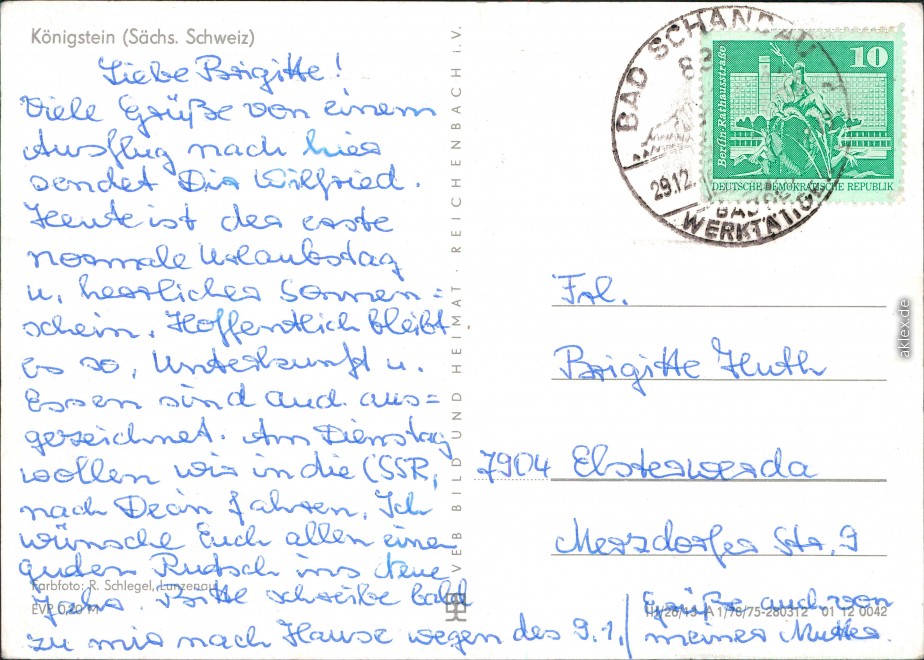 Königstein (Sächs. Schweiz)
Liebe Brigitte!
Viele Grüße von einem
Ausflug nach hier
sendet Dir Wilfried.
Heute ist der erste
normale Urlaubstag
u. herrlicher Sonnen=
schein. Hoffentlich bleibt
es so, Unterkunft u.
Essen sind auch aus=
gezeichnet. Am Dienstag
wollen wir in die ČSSR,
nach Dečin fahren. Ich
wünsche Euch allen einen
guten Rutsch ins Neue
Jahr. Bitte schreibe bald
zu mir nach Hause wegen des 9.1.
Grüße auch von
meiner Mutter.
Farbfoto: R. Schlegel, Lunzenau
EVP 0,20 M
VEB BILD UND HEIMAT · REICHENBACH I. V.
BAD SCHANDAU
29.12.
WERKTÄTIGE
10
Berlin · Rathausstraße
DEUTSCHE DEMOKRATISCHE REPUBLIK
Frl.
Brigitte Huth
7904 Elsterwerda
Merzdorfer Str. 9
A 1/78/75-280312 01 12 0042
akleX.de